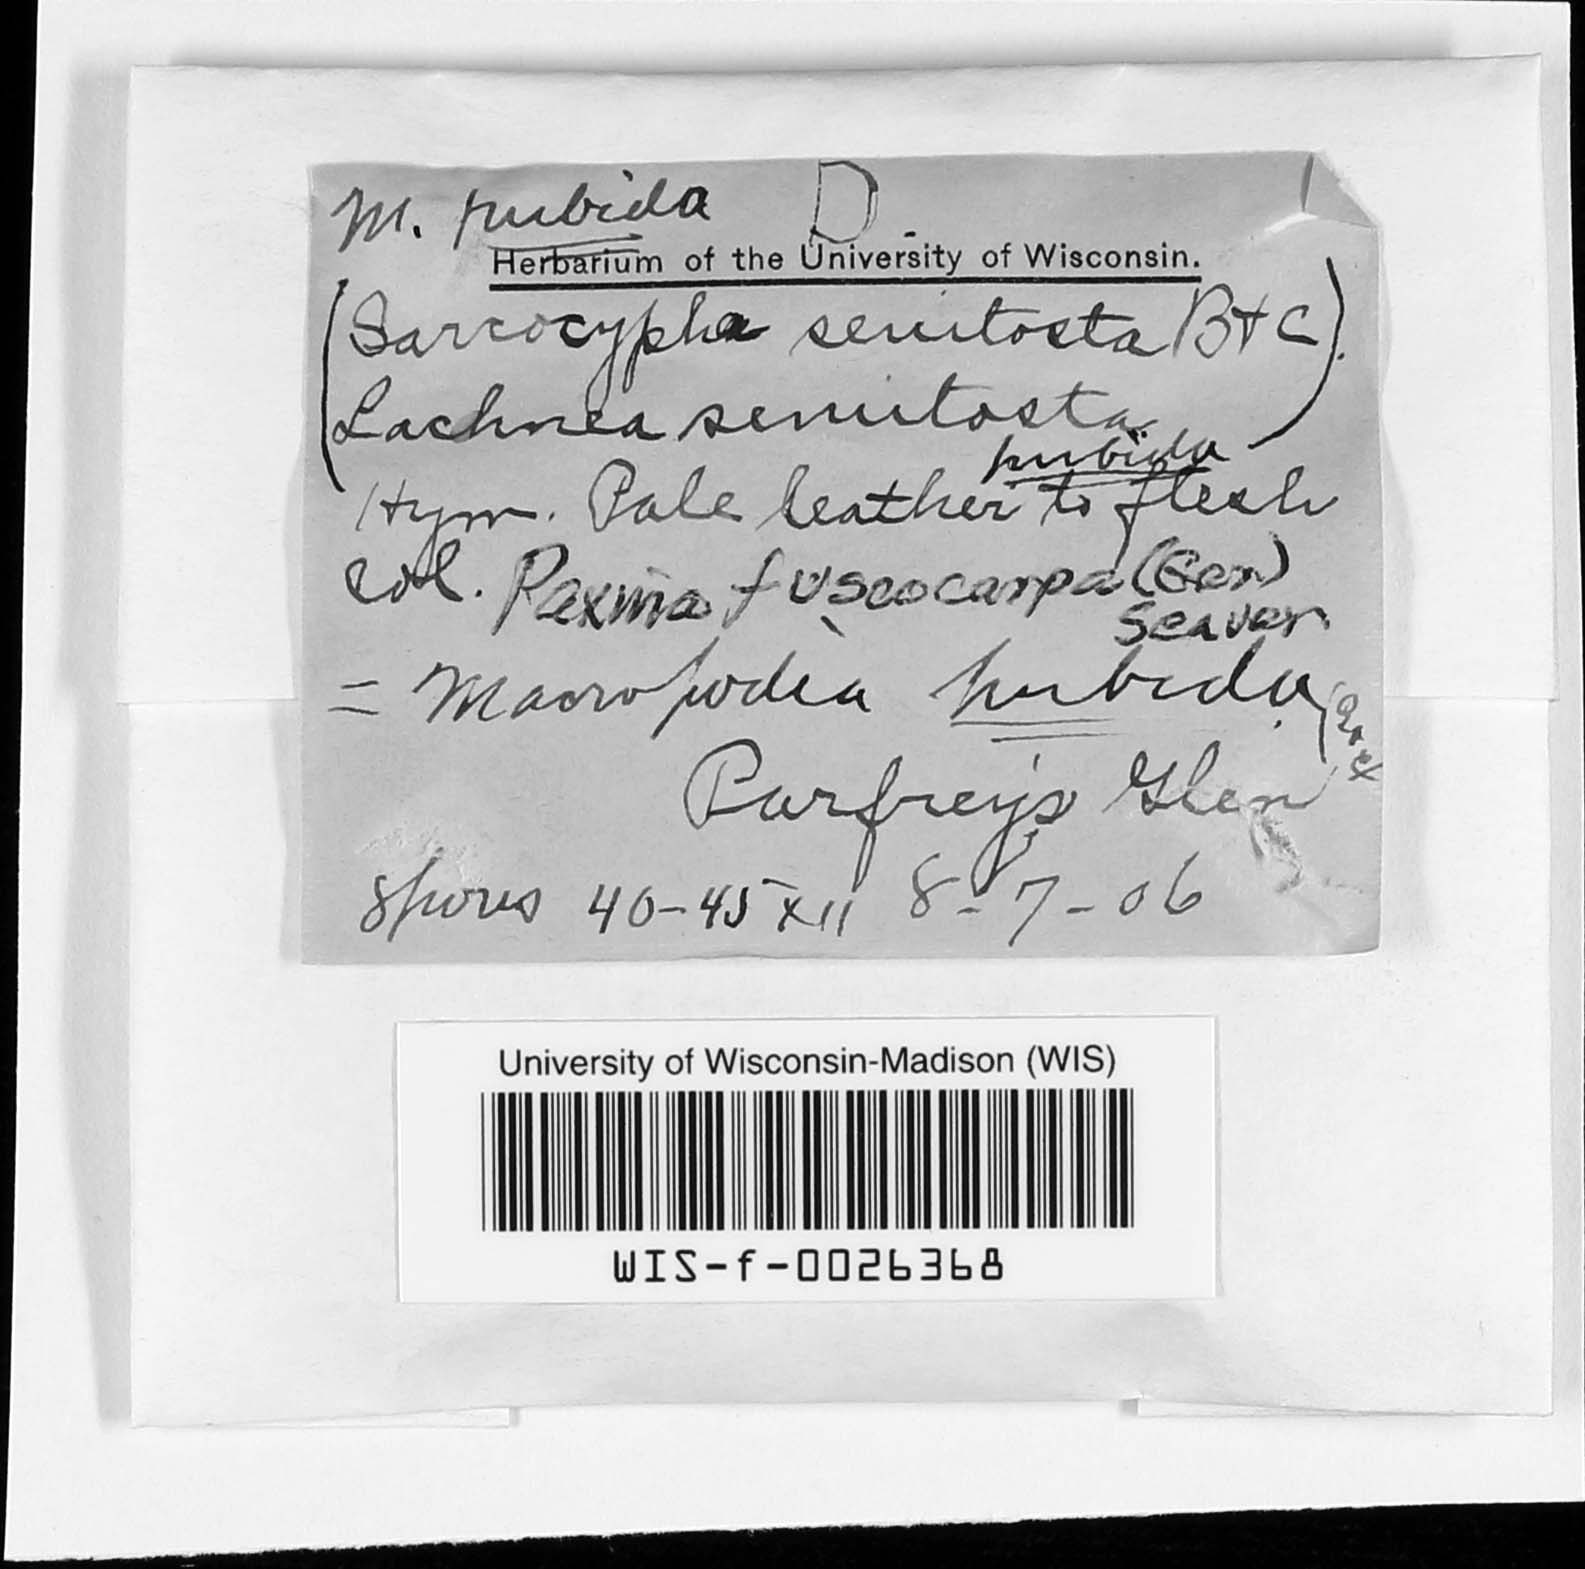 M. pubida D.
Herbarium of the University of Wisconsin.
(Sarcocypha semitosta B+C).
Lachnea semitosta)
pubida
Hym. Pale leather to flesh
col. Paxina fuscocarpa (Ger)
Seaver.
= Macropodia pubida
Parfrey's Glen
spores 40-45 x 11 8-7-06
University of Wisconsin-Madison (WIS)
WIS-f-0026368